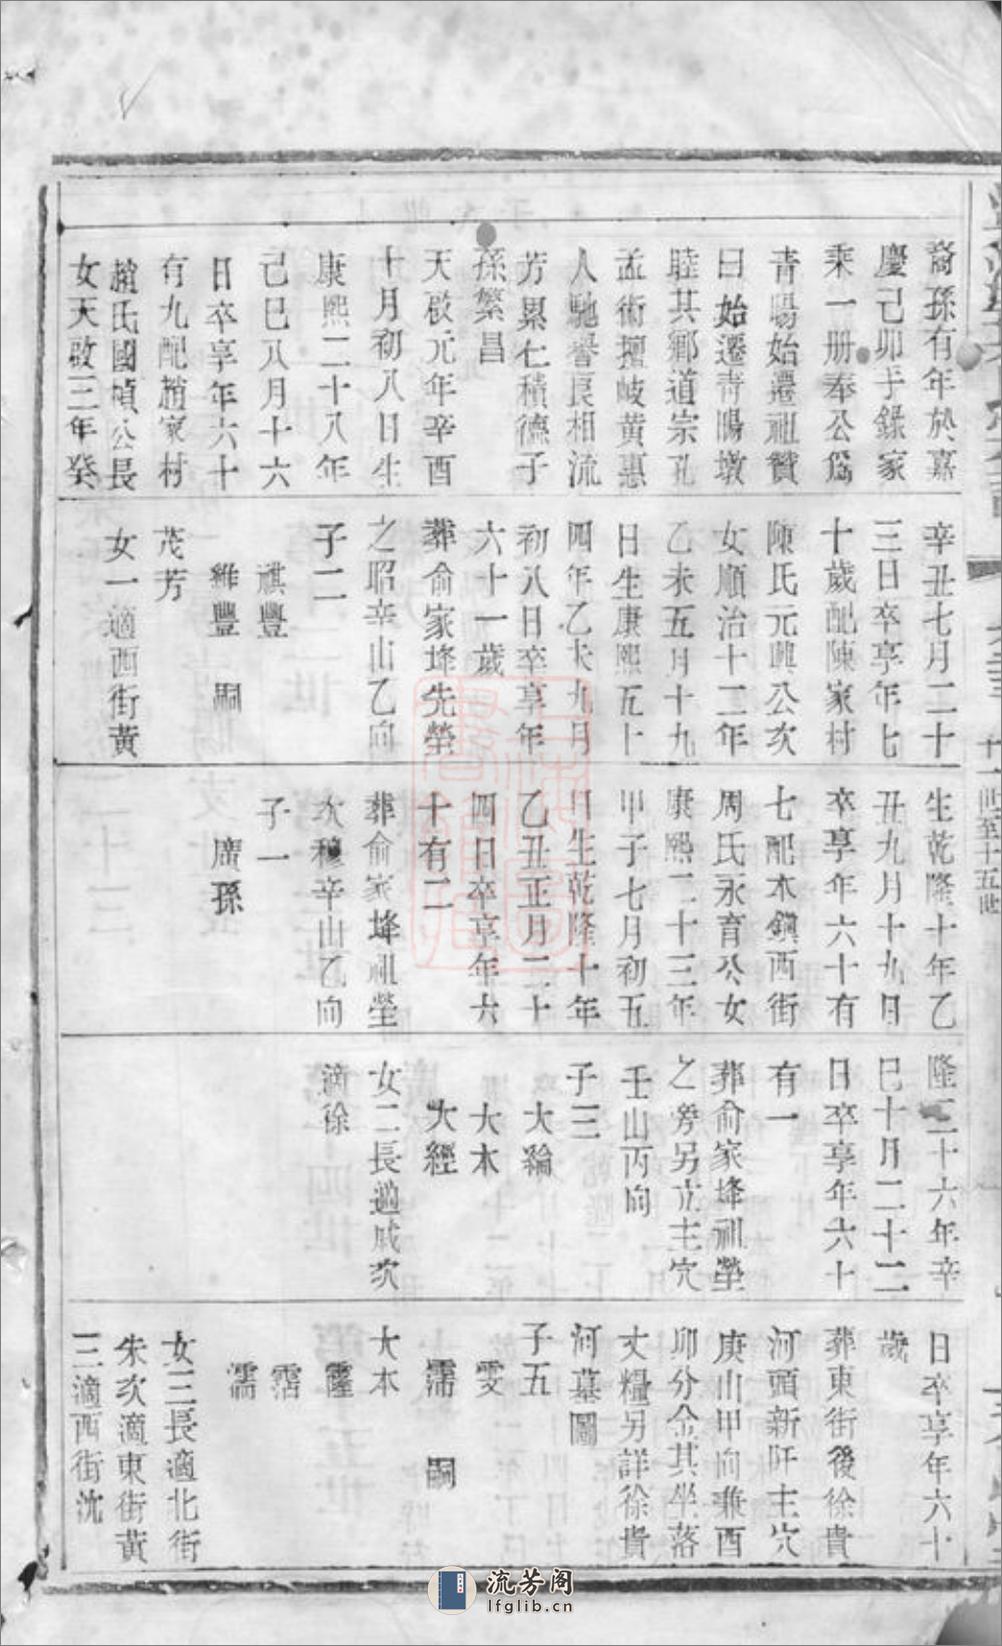 裔孫有年於嘉
慶己卯手錄家
乘一册奉公爲
青暘始遷祖贊
曰始遷青暘墩
睦其鄉道宗孔
孟術擅岐黃惠
人馳譽良相流
芳累仁積德子
孫繁昌
天啟元年辛酉
十月初八日生
康熙二十八年
己巳八月十六
日卒享年六十
有九配趙家村
趙氏國禎公長
女天啟三年癸
辛丑七月二十
三日卒享年七
十歲配陳家村
陳氏元興公次
女順治十二年
乙未五月十九
日生康熙五十
四年乙未九月
初八日卒享年
六十一歲
葬俞家㙡先塋
之昭辛山乙向
子二
祺豐
維豐 嗣
茂芳
女一適西街黃
生乾隆十年乙
丑九月十九日
卒享年六十有
七配木鎭西街
周氏永育公女
康熙二十三年
甲子七月初五
日生乾隆十年
乙丑正月二十
四日卒享年六
十有二
葬俞家㙡祖塋
次穆辛山乙向
子一
廣孫
隆二十六年辛
巳十月二十二
日卒享年六十
有一
葬俞家㙡祖塋
之旁另立主穴
壬山丙向
子三
大綸
大本
大經
女二長適戚次
適徐
日卒享年六十
歲
葬東街後徐貴
河頭新阡主穴
庚山甲向兼酉
卯分金其坐落
丈糧另詳徐貴
河墓圖
子五
雯
霈 嗣
大本
霳
霑
霈
女三長適北街
朱次適東街黃
三適西街沈
十一世至十五世
流芳阁
lfglib.cn